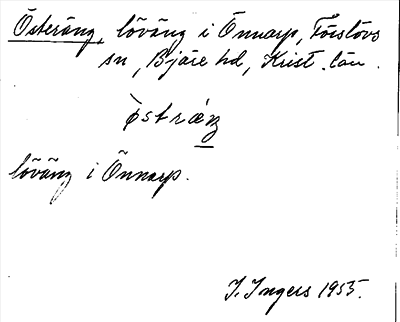 Österäng, löväng i Önnarp, Förslövs
sn, Bjäre hd, Krist. län.
òstrǽŋ
löväng i Önnarp.
I. Ingers 1955.